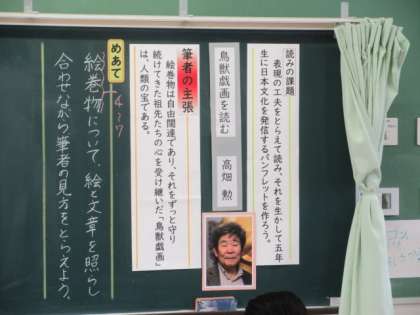 読みの課題
表現の工夫をとらえて読み、それを生かして五年
生に日本文化を発信するパンフレットを作ろう。
鳥獣戯画を読む
高畑 勲
筆者の主張
絵巻物は自由闊達であり、それをずっと守り
続けてきた祖先たちの心を受け継いだ「鳥獣戯画」
は、人類の宝である。
めあて
4~7
絵巻物について、絵と文章を照らし
合わせながら筆者の見方をとらえよう。